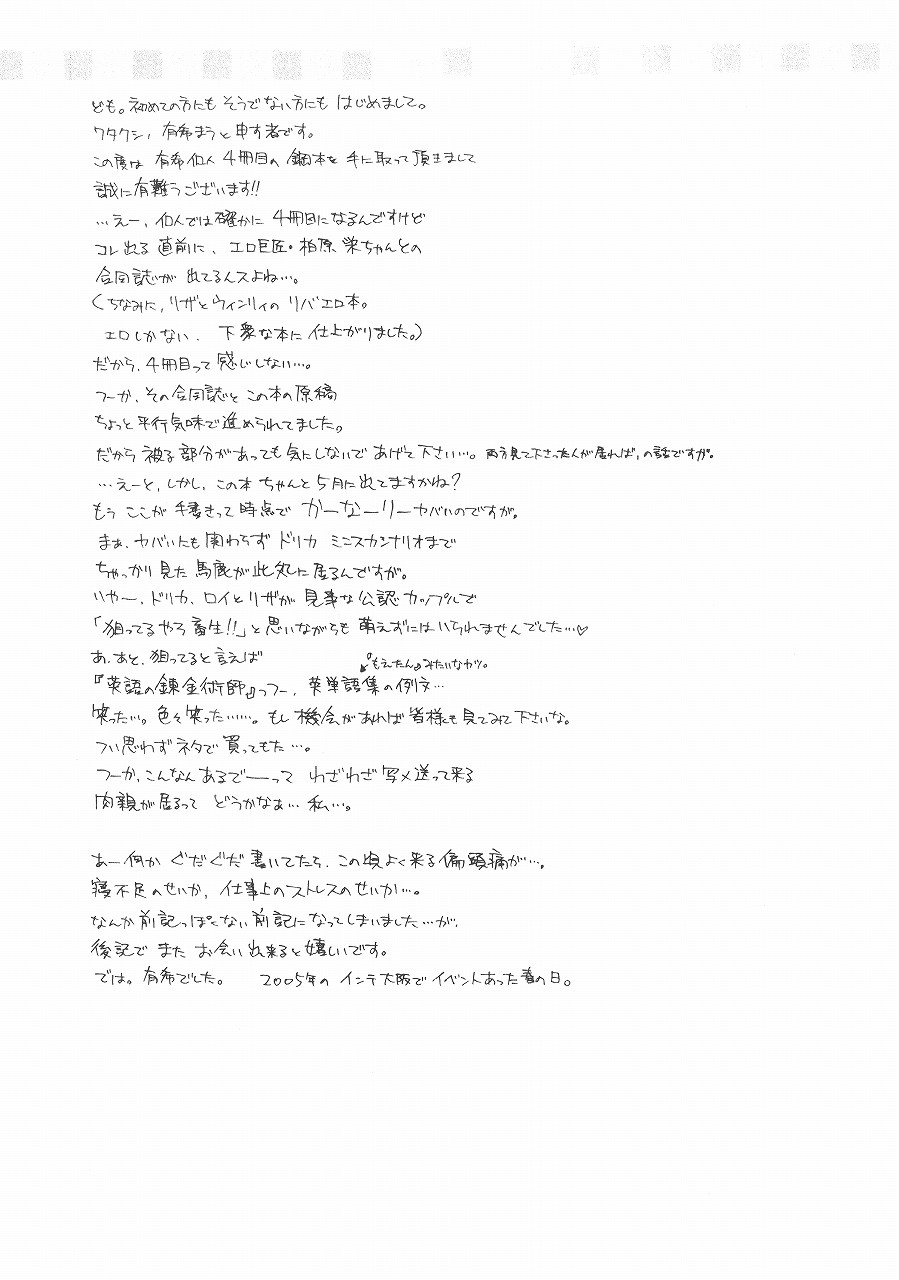 ども。初めての方にも そうでない方にも はじめまして。
ワタクシ、有希まうと申す者です。
この度は 有希個人 4冊目の 鋼本を 手に取って頂きまして
誠に有難うございます!!
…えー、個人では確かに 4冊目になるんですけど
コレ出る直前に、エロ巨匠・柏原栄ちゃんとの
合同誌が 出てるんスよね…。
(ちなみに、リザとウィンリィの リバエロ本。
エロしかない、下衆な本に 仕上がりました。)
だから、4冊目って感じしない…。
つーか、その合同誌と この本の原稿
ちょっと平行気味で進められてました。
だから 被る部分があっても気にしないで あげて下さい…。両方見て下さった人が居れば、の話ですが。
…えーと、しかし、この本 ちゃんと5月に出てますかね?
もう ここが 手書きって時点で かーなーりーヤバいのですが。
まぁ、ヤバいにも関わらず ドリカ ミニスカシナリオまで
ちゃっかり見た 馬鹿が此処に居るんですが。
いやー、ドリカ、ロイとリザが 見事な公認カップルで
「狙ってるやろ畜生!!」と思いながらも 萌えずにはいられませんでした…♡
あ、あと、狙ってると言えば
↙『もえたん』みたいなカンジ。
『英語の錬金術師』っつー、英単語集の例文…
笑った…。色々笑った……。もし機会があれば皆様も見てみて下さいな。
つい思わずネタで買ってもた…。
つーか、こんなんあるでーーって わざわざ写メ送って来る
肉親が居るって どうかなぁ… 私…。
あー何か ぐだぐだ書いてたら、この頃よく来る偏頭痛が…。
寝不足のせいか、仕事上のストレスのせいか…。
なんか前記っぽくない前記になってしまいました…が、
後記で また お会い出来ると嬉しいです。
では。有希でした。 2005年の インテ大阪で イベントあった春の日。